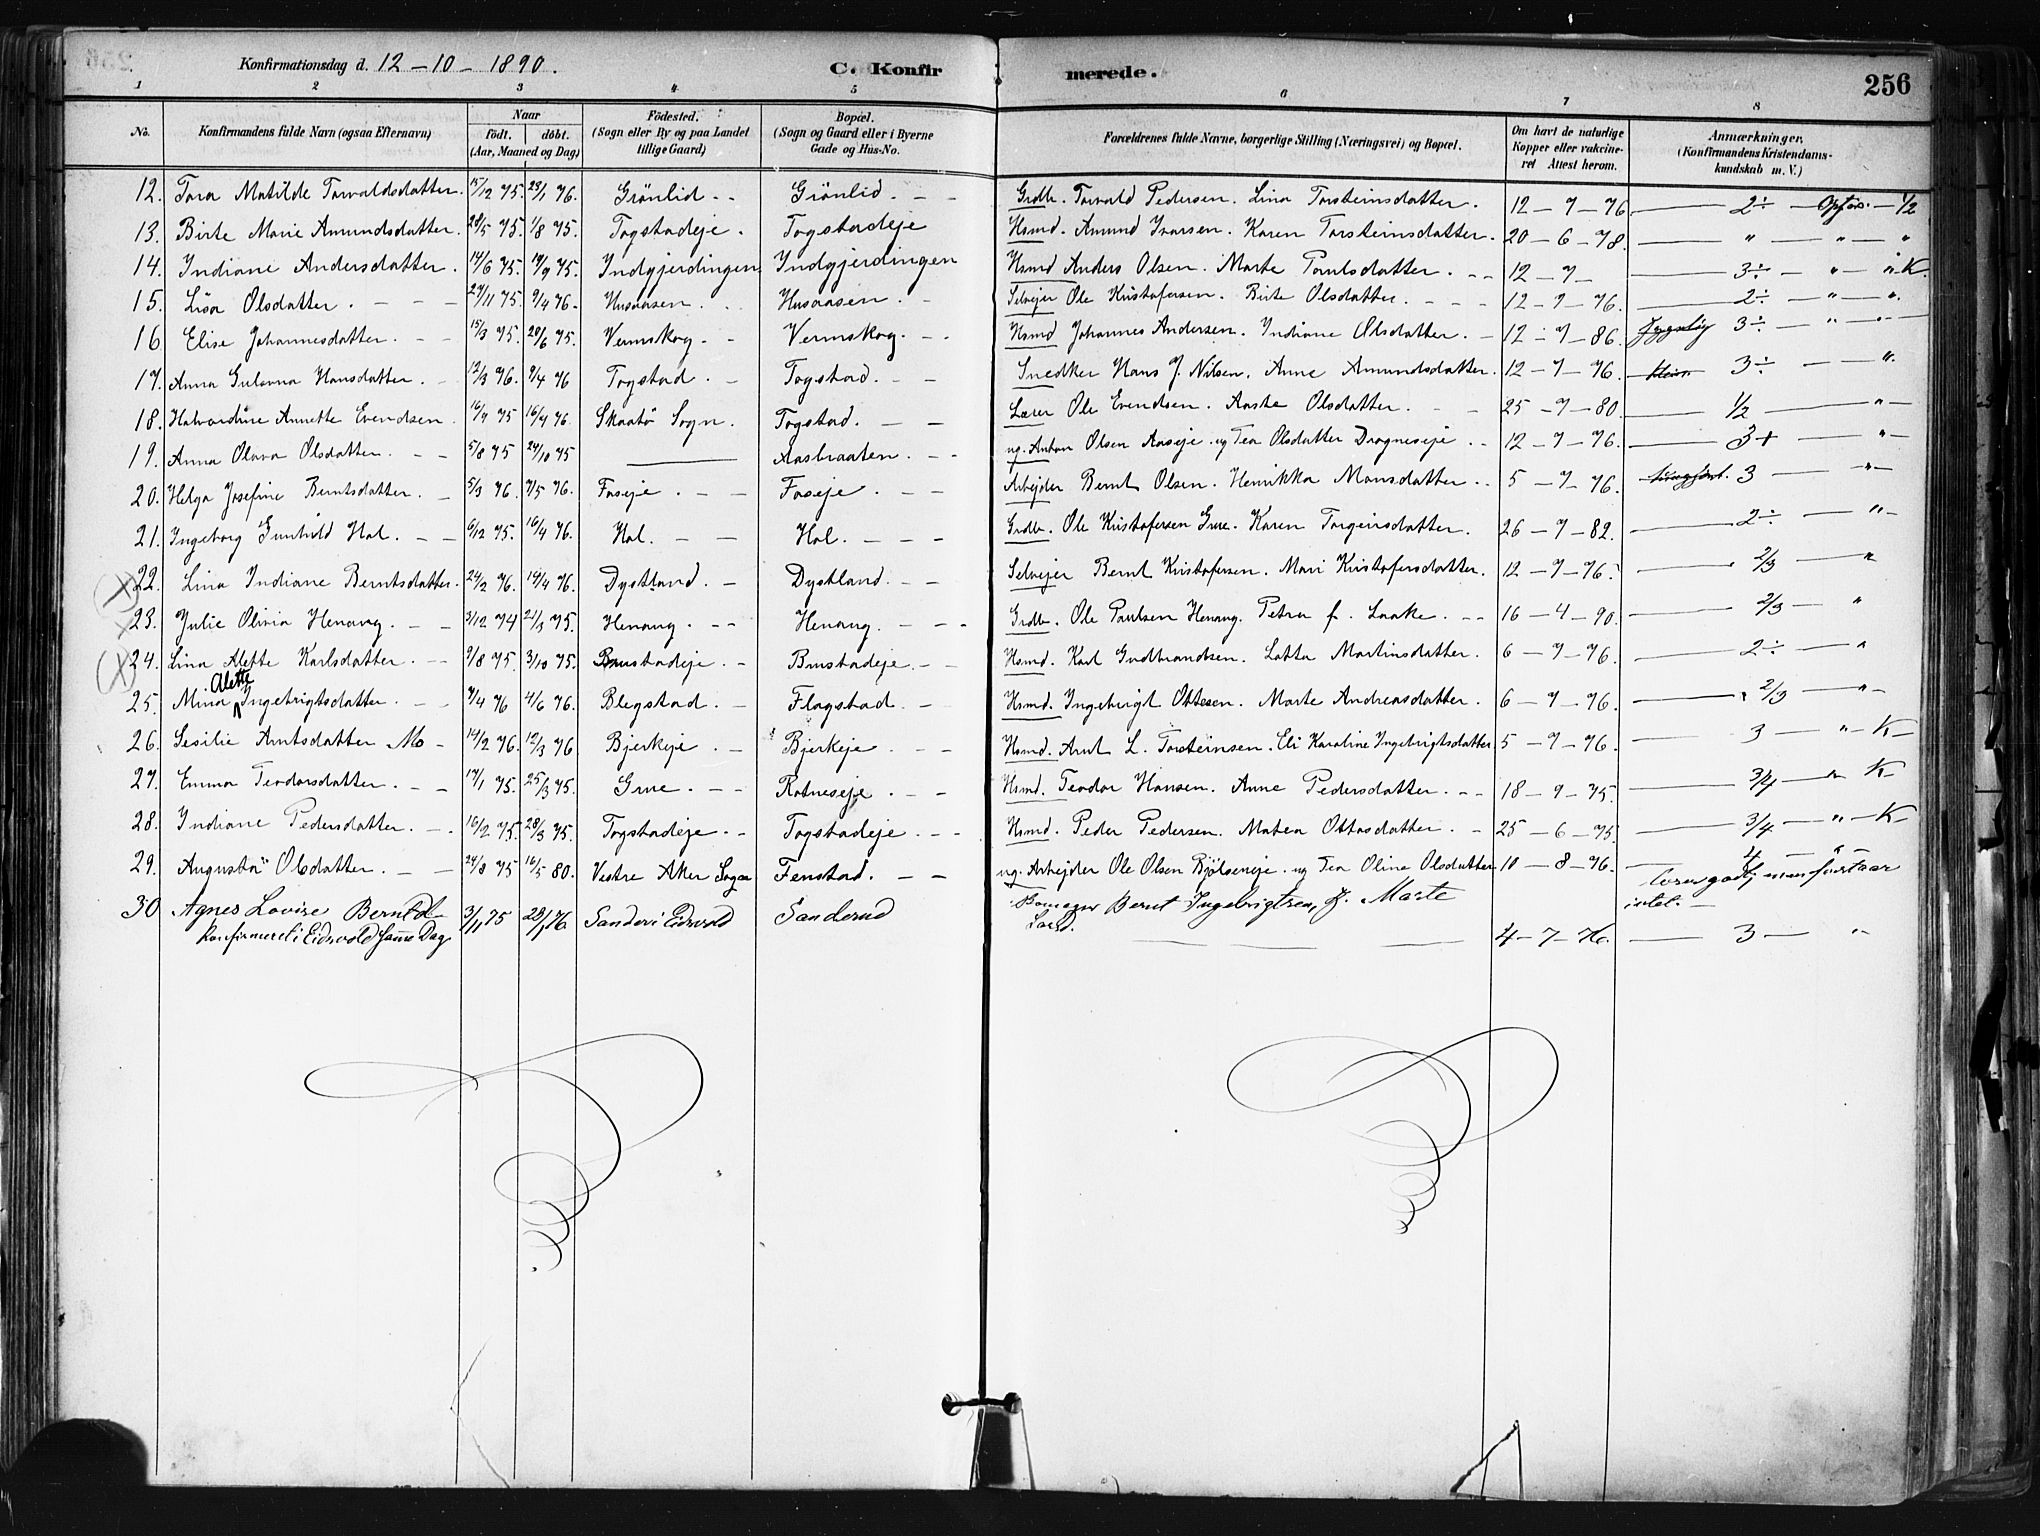 Konfirmationsdag d. 12-10-1890. C. Konfirmerede. 256
1 2 3 4 5 6 7 8
No. Konfirmandens fulde Navn (ogsaa Efternavn) Naar födt. döbt. (Aar, Maaned og Dag) Födested. (Sogn eller By og paa Landet tillige Gaard) Bopæl. (Sogn og Gaard eller i Byerne Gade og Hus-No. Forældrenes fulde Navne, borgerlige Stilling (Næringsvei) og Bopæl. Om havt de naturlige Kopper eller vakcineret Attest herom. Anmærkninger. (Konfirmandens Kristendomskundskab m. V.)
12. Tora Matilde Torvaldsdatter. 15/12 75. 23/1 76. Grönlid Grönlid. Grdb. Torvald Pedersen. Lina Torsteinsdatter. 12-7-76. 2÷ Opför. 1/2
13. Birte Marie Amundsdatter. 28/5 75. 1/8 75. Togstadeje. Togstadeje Hsmd. Amund Ivarsen. Karen Torsteinsdatter. 20-6-78. " " "
14. Indiane Andersdatter. 14/6 75. 19/9 75. Indgjerdingen Indgjerdingen Hsmd Anders Olsen. Marte Paulsdatter. 12-7- 3÷ " " K.
15. Lisa Olsdatter. 27/11 75. 9/4 76. Husaasen Husaasen. Selvejer Ole Kristofersen. Birte Olsdatter. 12-7-76. 2÷ " "
16 Elise Johannesdatter. 15/3 75. 20/6 75. Vermskog. Vermskog. Hsmd Johannes Andersen. Indiane Olsdatter. 12-7-86. 3÷ " "
17. Anna Gulovna Hansdatter. 12/3 76. 9/4 76 Togstad. Togstad. Snedker Hans J. Nilsen. Anne Amundsdatter. 12-7-76. 3÷ "
18. Halvardine Annette Evendsen. 16/9 75 16/4 76. Skaatö Sogn. Togstad. Lærer Ole Evendsen. Aaste Olsdatter. 25-9-80. 1/2 "
19. Anna Olava Olsdatter. 5/8 75 24/10 75 Aasbraaten. ug. Anton Olsen Aaseje. ug Tea Olsdatter Dragneseje 12-7-76. 3+ "
20. Helga Josefine Berntsdatter. 5/3 76. 7/5 76. Foseje. Foseje. Arbejder Bernt Olsen. Henrikka Monsdatter. 5-7-76. 3 "
21. Ingeborg Gunhild Hol. 6/12 75. 16/4 76. Hol. Hol. Grdb. Ole Kristofersen Grue. Karen Torgeirsdatter. 26-7-82. 2÷ "
22. Lina Indiane Berntsdatter. 24/2 76. 14/4 76. Dystland. Dystland. Selvejer Bernt Kristofersen. Mari Kristofersdatter. 12-7-76. 2/3 "
23. Julie Olivia Henaug. 3/12 74 21/3 75. Henaug. Henaug. Grdb. Ole Paulsen Henaug. Petra f. Laake. 16-4-90. 2/3 "
24. Lina Alette Karlsdatter. 9/8 75. 3/10 75. Brustadeje. Brustadeje. Hsmd. Karl Gudbrandsen. Lotta Martinsdatter. 6-7-76. 2÷ "
25. Mina Alette Ingebrigtsdatter. 7/4 76 4/6 76. Blegstad. Flagstad. Hsmd. Ingebrigt Ottesen. Marte Andreasdatter. 6-7-76. 2/3 "
26. Sesilie Arntsdatter Mo 14/2 76. 12/3 76 Bjerkeje. Bjerkeje. Hsmd. Arnt L. Torsteinsen. Eli Karoline Ingebrigtsdatter 5-7-76. 3 " K
27. Emma Teodorsdatter. 17/1 75. 25/3 75. Grue. Rotneseje. Hsmd. Teodor Hansen. Anne Pedersdatter. 18-9-75. 3/4 " K
28. Indiane Pedersdatter. 16/2 75. 28/3 75. Togstadeje. Togstadeje. Hsmd. Peder Pedersen. Matea Ottosdatter. 25-6-75. 3/4 " K
29. Augusta Olsdatter. 24/8 75 16/5 80. Vestre Aker Sogn Fenstad. ug. Arbejder Ole Olsen Bjölseneje. ug Tea Olina Olsdatter 10-8-76. 4 " læser godt, men forstaar intet.
30 Agnes Lovise Berntsd. 3/11 75 23/1 76 Sander i Eidsvold Sanderud Bernt Ingebrigtsen, f. Marte Larsd. 4-7-76. 3 "
Konfirmeret i Eidsvold samme Dag